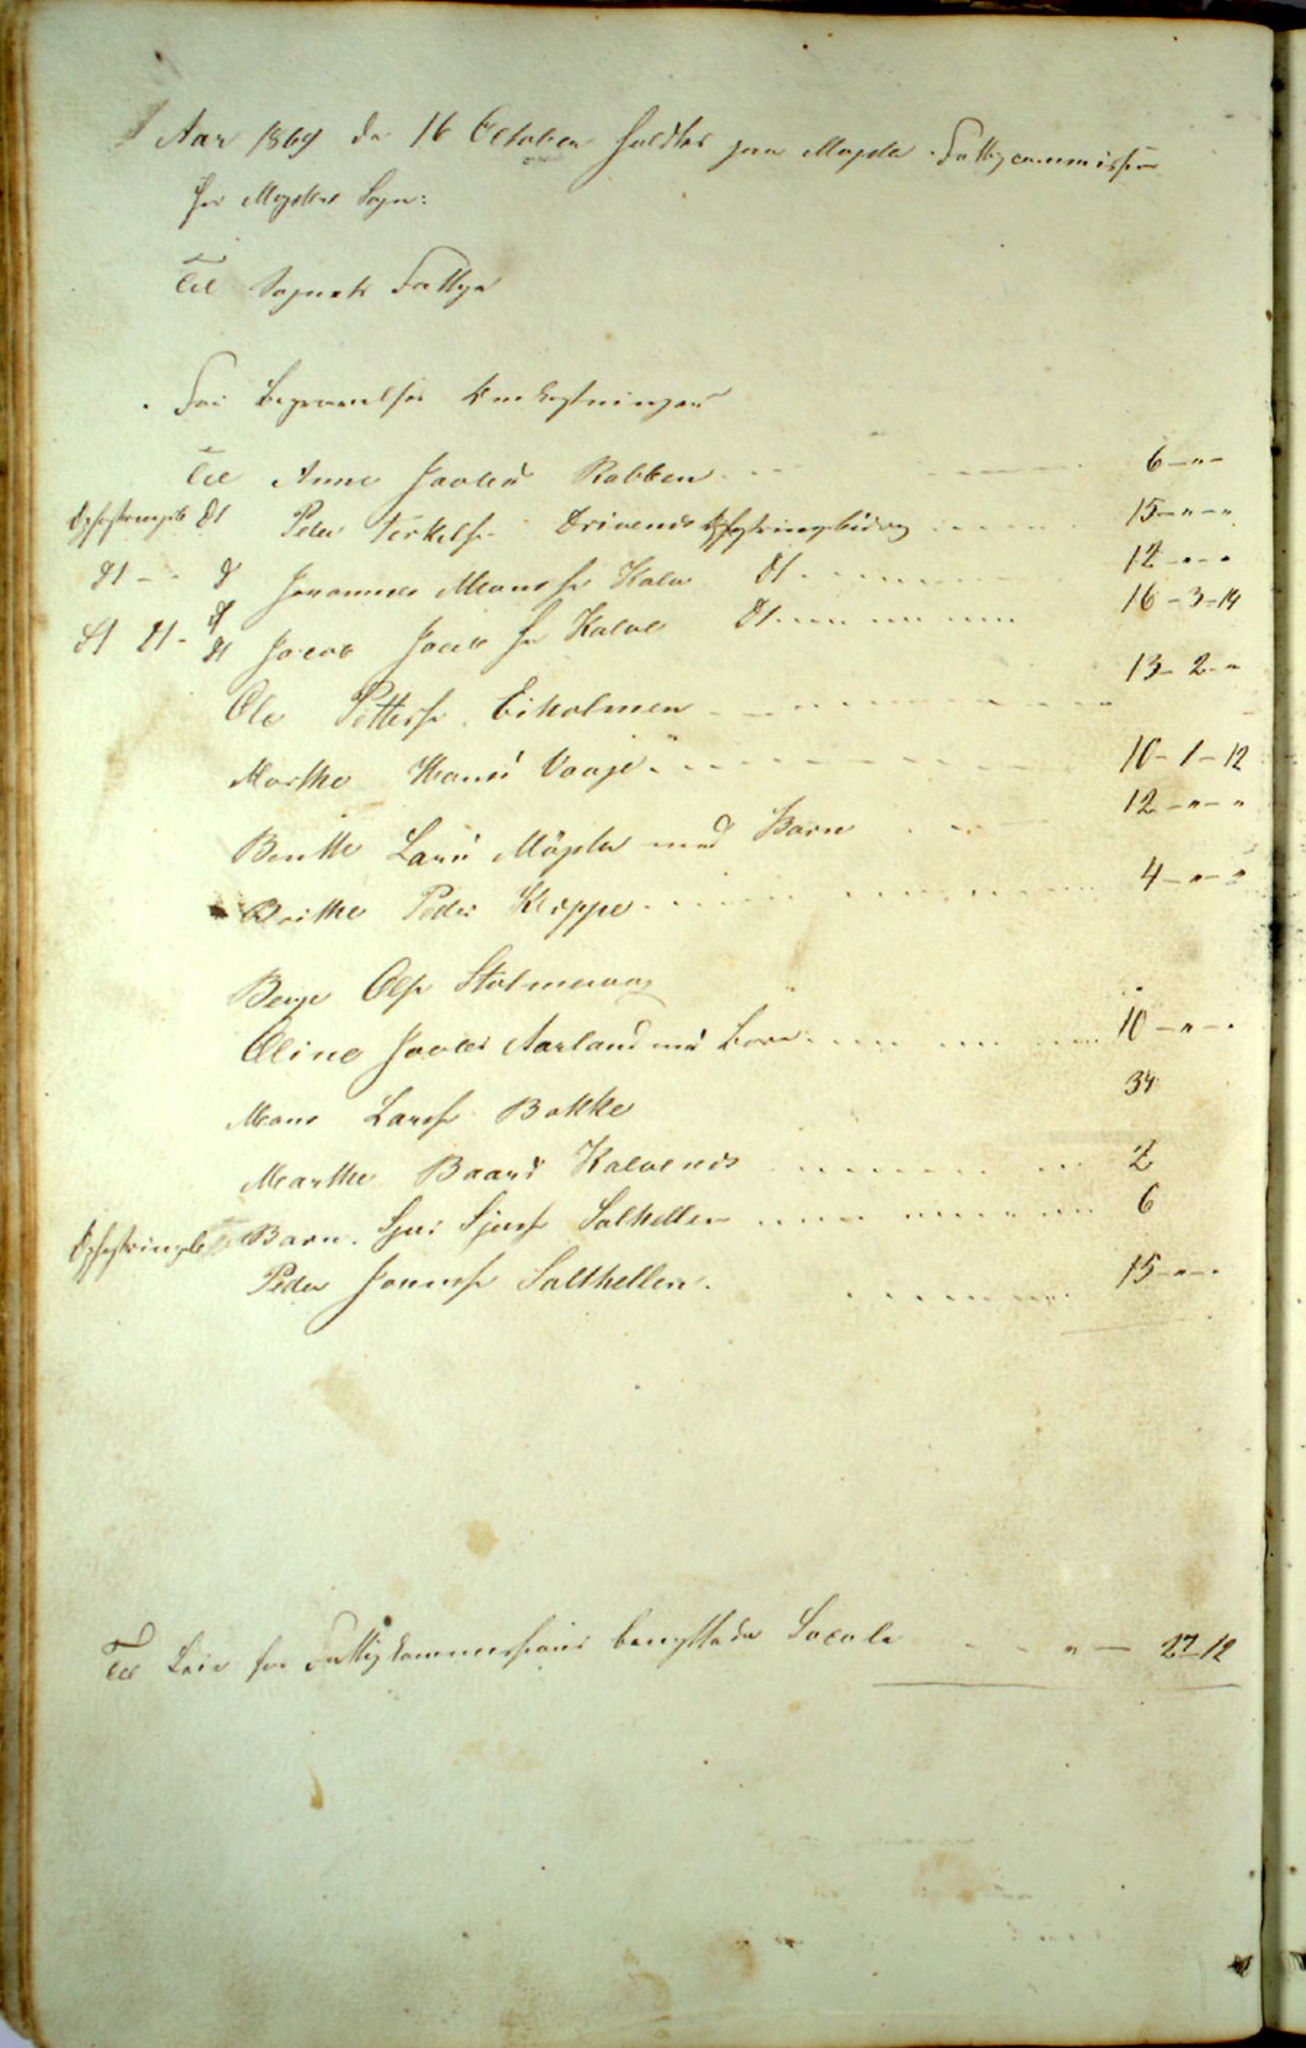 Aar 1869 de 16 October holdtes paa Møgster Fattigcommission
for Møgster Sogn:
Til Sognets Fattige
For Begravelses Omkostninger
Til Anne Jacobs Rabben 6 - " -
Opfostringsb dt Peder Terkelsen Drivenes Opfostringsbidrag 15 - " - "
dt - d Johannes Monssen Kalve dt 12 - " - "
dt dt - dt Jacob Jacobsen Kalve dt 16 - 3 - 14
Ole Pettersen Eiholmen 13 - 2 - "
Marthe Hans Vaage 10 - 1 - 12
Benthe Lars Møgster med Barn 12 - " - "
Brithe Peders Kleppe 4 - " - "
Berge Olsen Stolmevaag
Oline Jacobs Aarland med Børn 10 - " - "
Mons Larsen Bakke 34
Marthe Baards Kalvenes 2
Opfostringsb Barn. Sjur Sjursen Salthellen 6
Peder Jonnesen Salthellen 15 - " - "
Til Leie for Fattigkommissions benyttede Locale " - 27 12